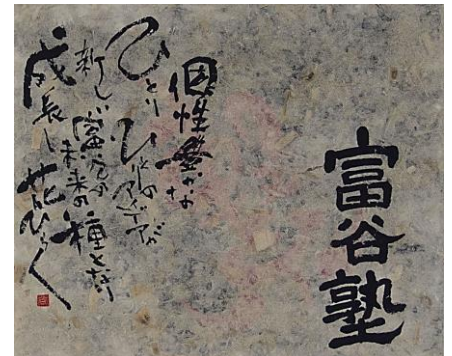 富谷塾
個性豊かな
ひとりひとりのアイデアが
新しい富谷の
未来の種となり
成長し花ひらく